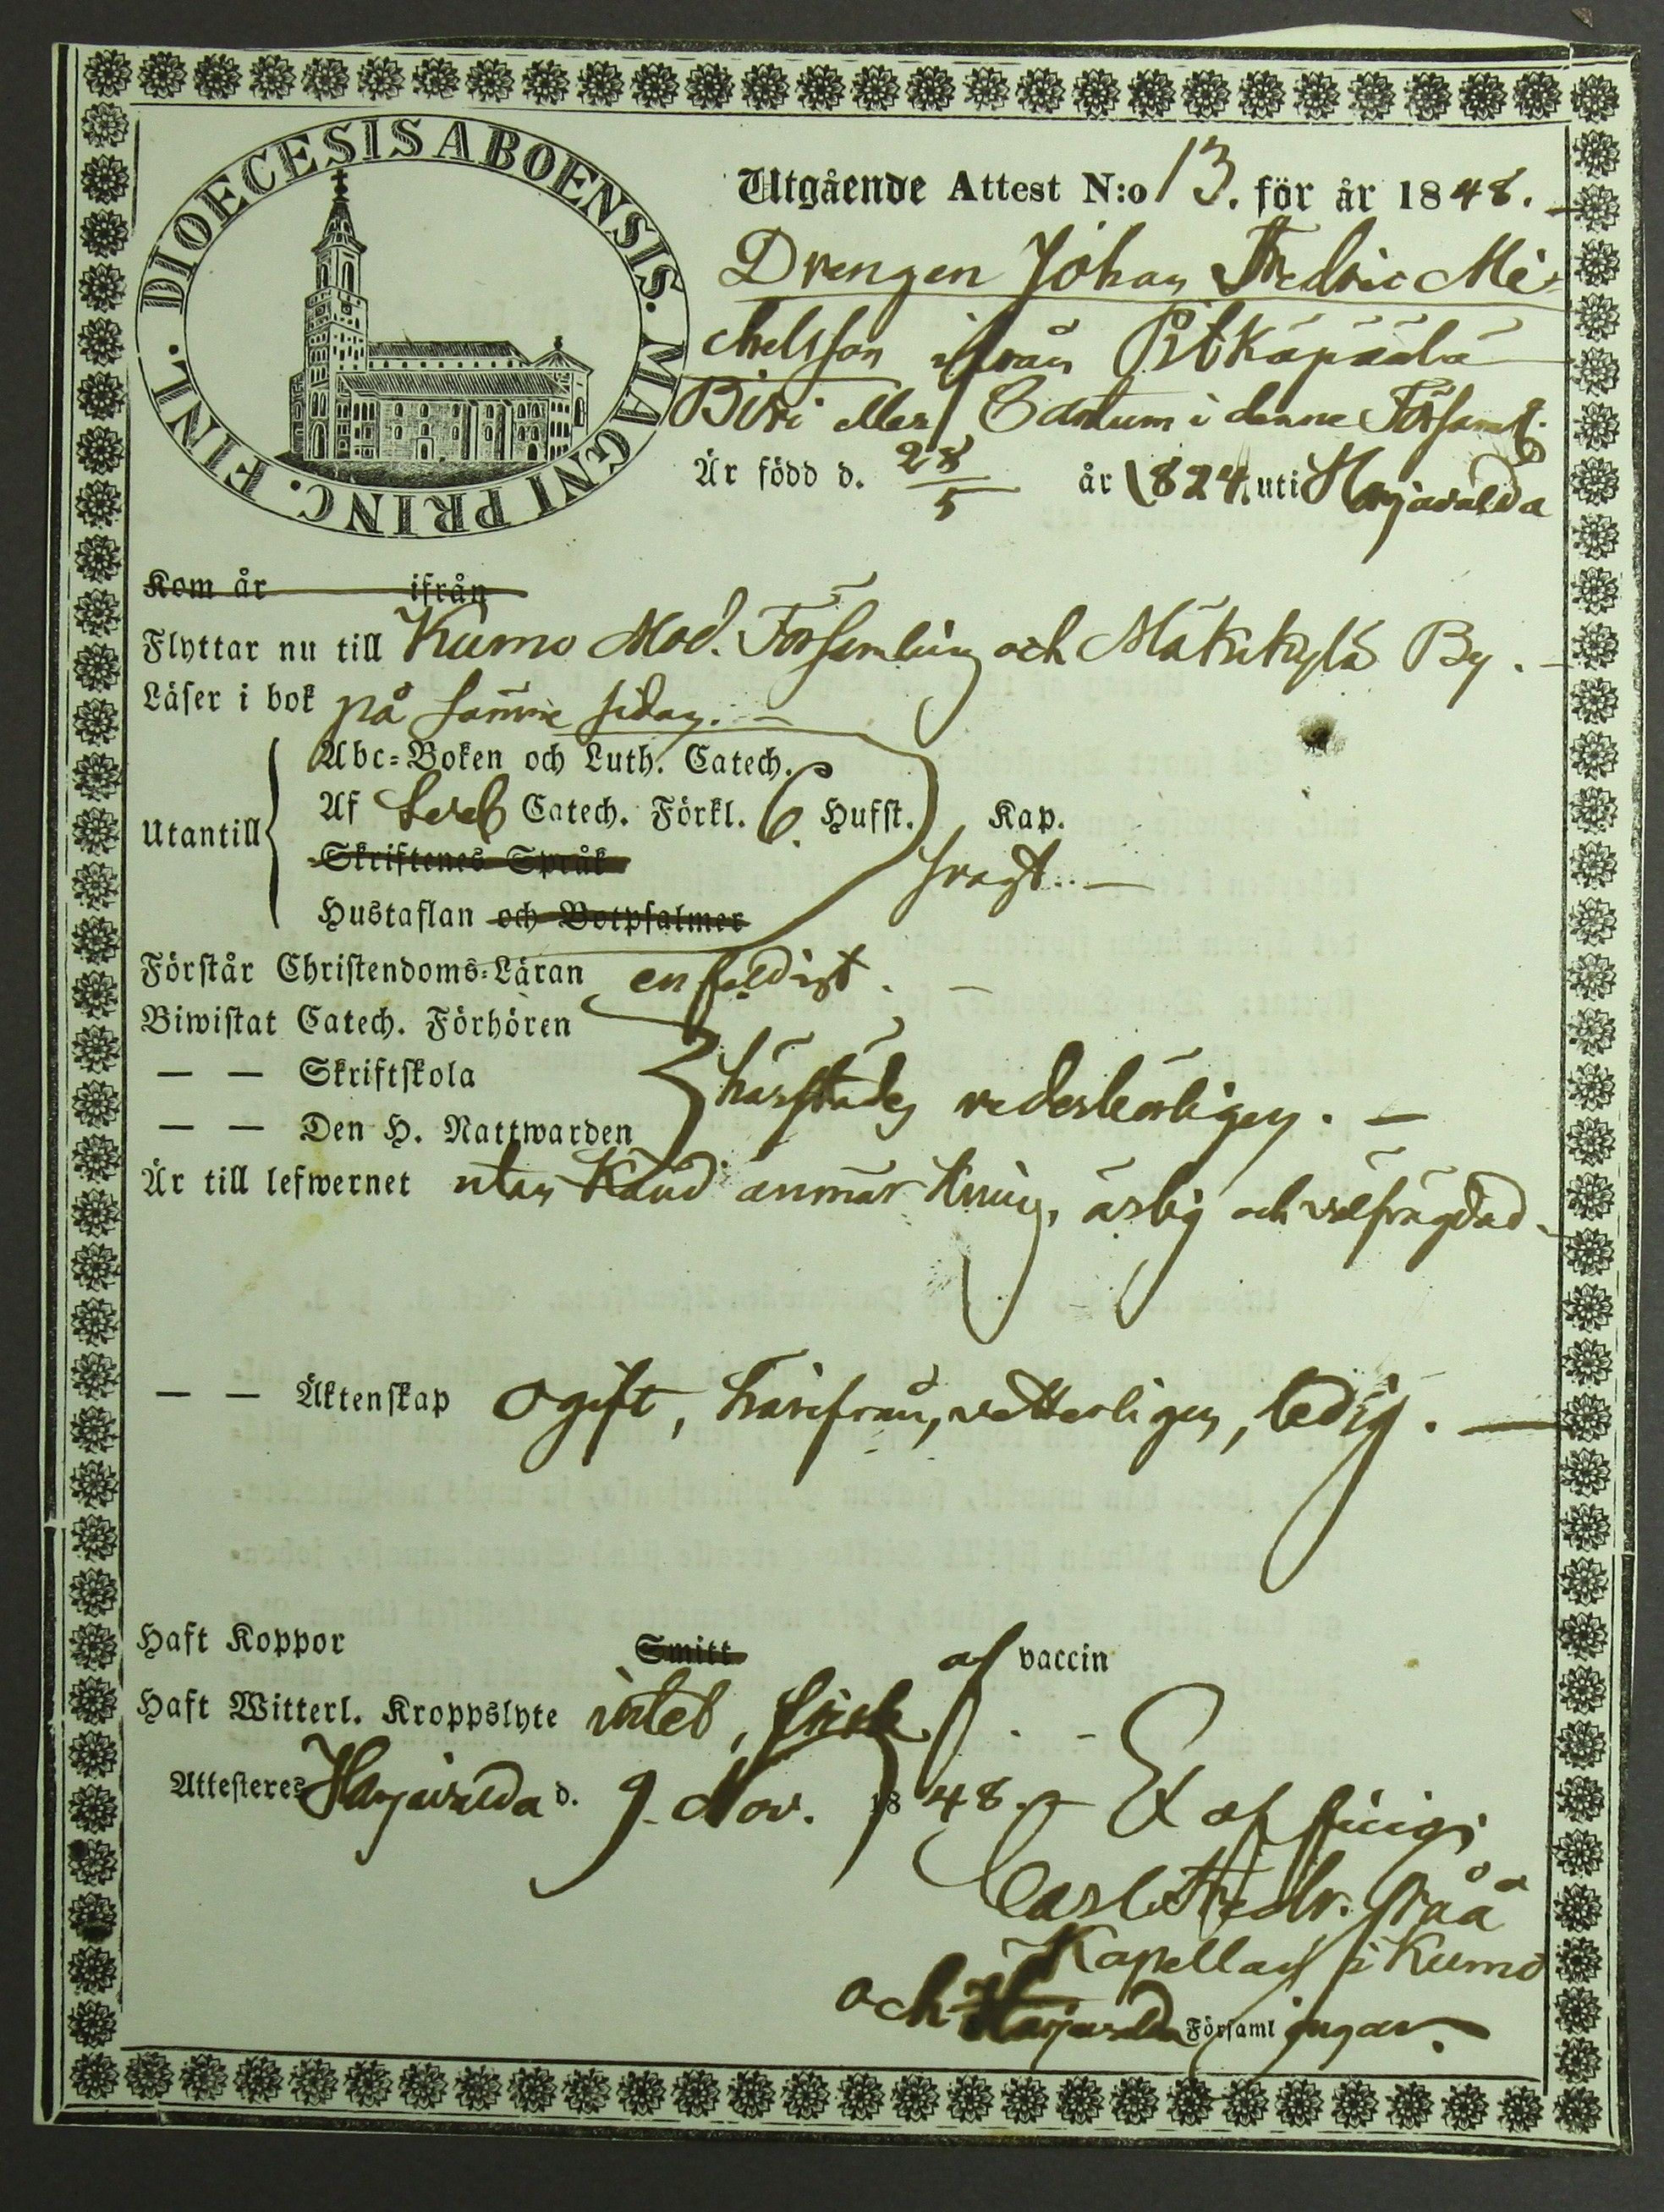 DIOECESIS ABOENSIS. MAGNI PRINC. FINL.
Utgående Attest N:o 13. för år 1848.
Drengen Johan Fredric Mi-
chelsson ifrån Pitkäpäälä
eller i denne Församl.
Är född d. 28/5 år 1824 uti Harjavalda
Kom år ifrån
Flyttar nu till Kumo Mod. Församling och By.
Läser i bok på samme sidan.
Abc-Boken och Luth. Catech.
Utantill Af Catech. Förkl. 6 Hufst. Kap.
Skriftenes Språk
svagt.
Hustaflan och Botpsalmer
Förstår Christendoms-Läran enfaldigt.
Biwistat Catech. Förhören
— — Skriftskola
härstädes vederbörligen.
— — Den H. Nattwarden
Är till lefwernet utan känd anmärkning, ärlig och välfrägdad.
— — Äktenskap ogift, härifrån, vetterligen, ledig.
Haft Koppor Smitt af vaccin
Haft Witterl. Kroppslyte intet, frisk.
Attesteres Harjavalda d. 9 Nov. 1848. Ex officio
Carl Fredr.
Kapellan i Kumo
och Harjavalda Församlingar.